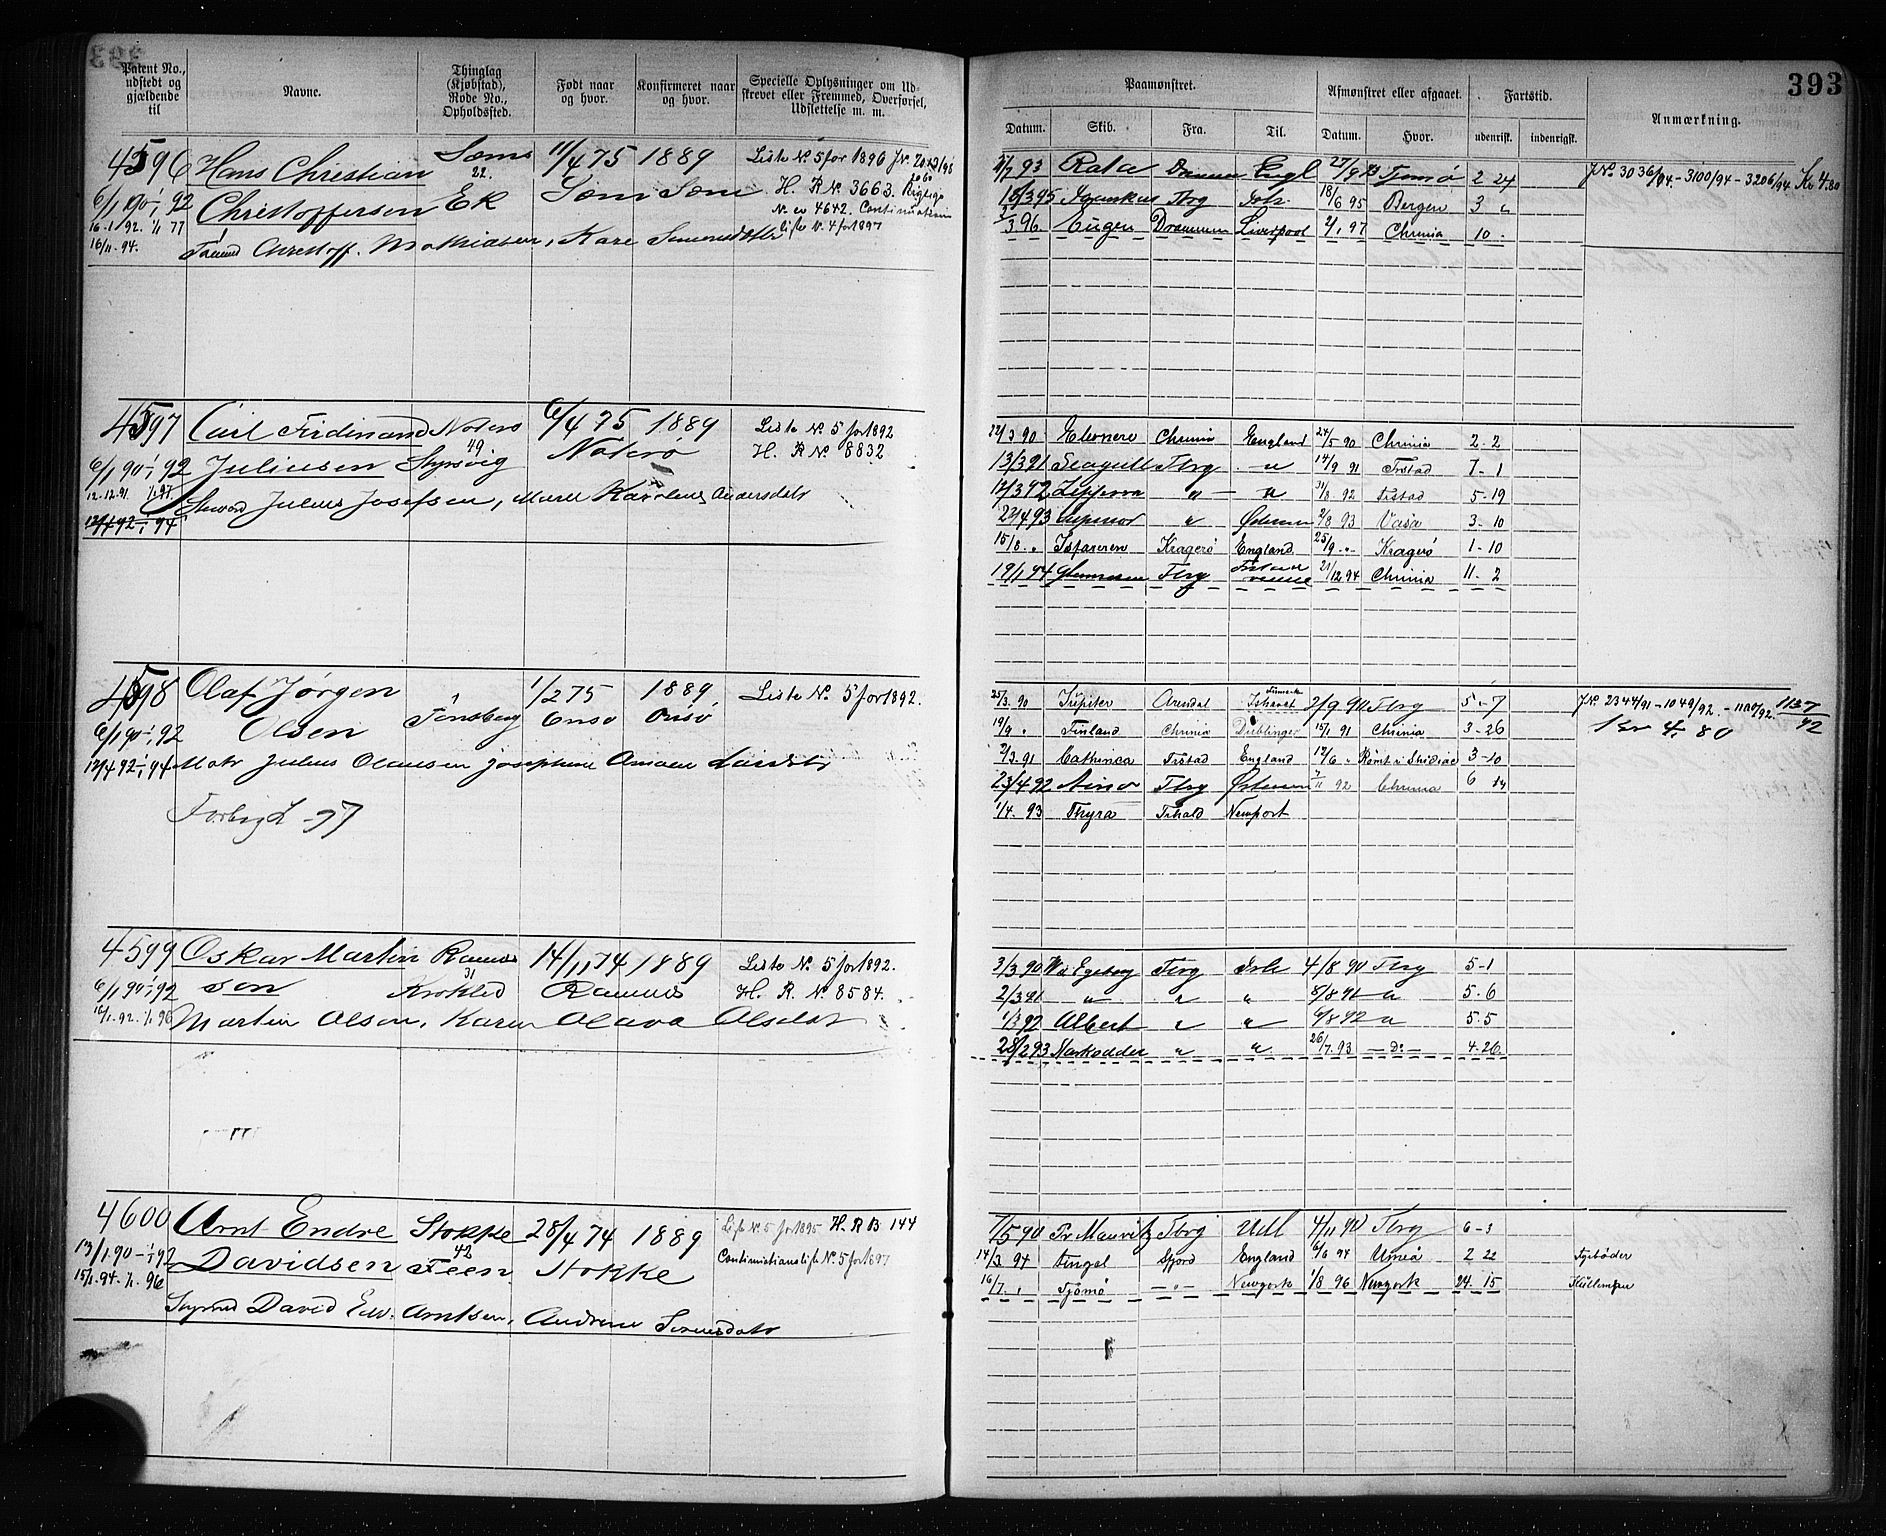 393
Patent No., udstedt og gjældende til
Navne.
Thinglag (Kjøbstad), Rode No., Opholdssted.
Født naar og hvor.
Konfirmeret naar og hvor.
Specielle Oplysninger om Udskrevet eller Fremmed, Overførsel, Udslettelse m. m.
Paamønstret.
Afmønstret eller afgaaet.
Fartstid.
Anmærkning.
Datum. Skib. Fra. Til. Datum. Hvor. udenrikst. indenrigst.
4596 Hans Christian Sæm 11/4 75 1889 Liste No. 5 for 1896
6/1 90 - 1/1 92 Christoffersen 22. Ek Sæm Sæm H. R No. 3663.
16-1/92. 1/1 77 No. er 4642. Continuations
16/11-94. Christoff. Mathiasen, Kare liste No. 4 for 1897
93 Rata Engl 27/9 93 Tjømø 2 24 JNo 3036/94. - 3100/94 - 3206/94 Kr 4.80
95 Tbrg 18/6 95 Bergen 3 "
96 Eugen Drammen Liverpool 2/1 97 Chrinia 10 -
4597 Carl Ferdinand Nøterø 6/4 75 1889 Liste No. 5 for 1892
6/1 90 - 1/1 92 Juliusen 49 Nøterø H. R No. 8832
12-12-91 Julius Josefsen, Maren Karoline Andersdtr
12/4 92 - 1/1 94
22/3 90 Eleonore Chrinia England 24/5 90 Chrinia 2-2
13/3 91 Seagull Tbrg - " 14/9 91 Frstad 7-1
12/3 92 " - " 31/8 92 Frstad 5-19
22/4 93 Superior " Østersøen 2/8 93 Vasa 3-10
15/8 " Isfareren Kragerø England 25/9 - " - Kragerø 1-10
19/1 94 Tbrg 21/12 94 Chrinia 11-2
4598 Olaf Jørgen 1/2 75 1889 Liste No. 5 for 1892.
6/1 90 - 1/1 92 Olsen Tønsberg Onsø Onsø
12/4 92 - 1/1 94 Matr Julius Olaussen Josephine Amalie Larsdtr
Forbigt -97
25/3 90 Jupiter Arendal Ishavet 2/9 90 Tbrg 5-7 JNo. 2344/91 - 1049/92. - 1100/92. 1137/92
19/9 " Finland Chrinia 15/1 91 Chrinia 3-26 Kr 4,80
2/3 91 Cathinca Frstad England 12/6 " 3-10
23/4 92 Tbrg Østersøen 7/11 92 Chrinia 6 14
1/4. 93 Thyra Frhald Newport
4599 Oskar Martin Ramnes 14/11 74 1889 Liste No. 5 for 1892.
6/1 90 - 1/1 92 sen 31 Ramnes H. R. No. 8584.
16/1-92. 1/1 96 Martin Olsen, Karen Olava Olsdtr
3/3 90 Wd Egeberg Tbrg Ish 4/8 90 Tbrg 5-1
2/3 91 - " - " " 8/8 91 " 5.6
1/3 92 Albert " " 6/8 92 " 5.5
28/2 93 " " 26/7. 93 - Do - 4-26
4600 Arnt Endre Stokke 28/4 74 1889 Liste No. 5 for 1895 H. R B 144
13/1 90 - 1/1 92 Davidsen 42 Feen Stokke Continuationsliste No. 5 for 1897
15/1-94. 1/1. 96 David Edv. Arntsen, Andrine Sørensdatr
7/5 90 Fr Mauritz Tbrg Udl 4/11 90 Tbrg 6-3
14/3 94 England 6/6 94 Umeå 2 22 Fyrbøder
16/7 " Tjømø - " - Newyork 1/8 96 Newyork 24. 15